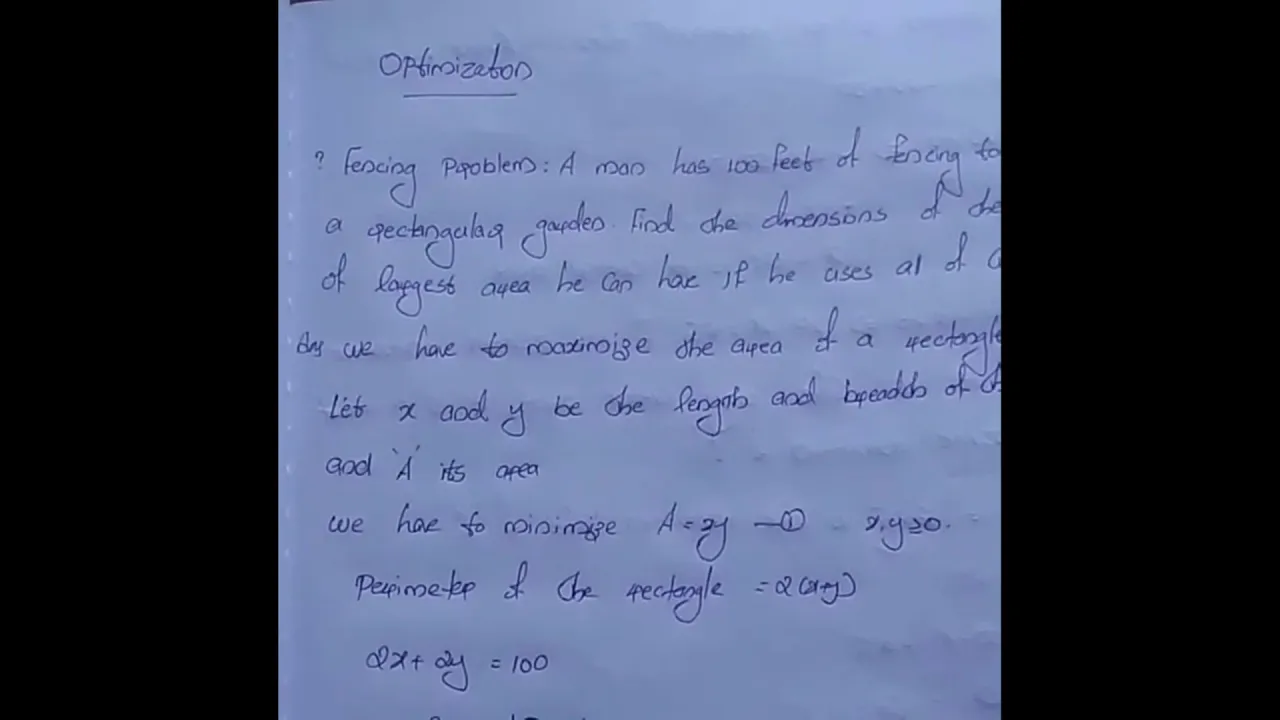 Optimization
? Fencing Problem: A man has 100 feet of fencing to
a rectangular garden. Find the dimensions of the
of largest area he can have if he uses al of
Ans we have to maximize the area of a rectangle
Let x and y be the length and breadth of
and 'A' its area
we have to minimize A = xy —① x,y≥0.
Perimeter of the rectangle = 2(x+y)
2x + 2y = 100